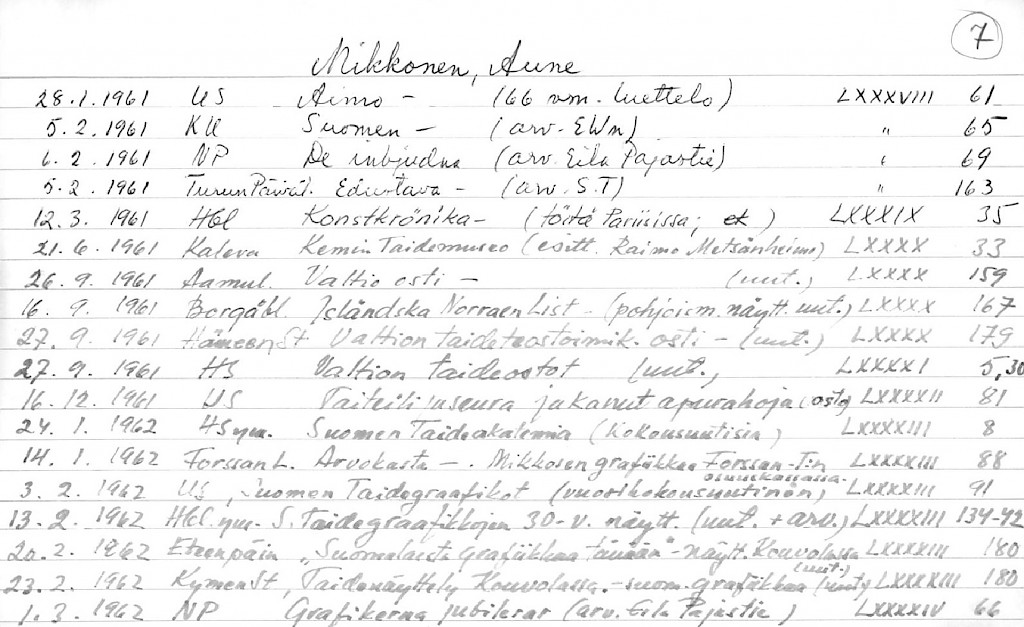 7
Mikkonen, Aune
28.1.1961 US Aimo - (66 vm. luettelo) LXXXVIII 61
5.2.1961 KU Suomen - (arv. EWn) " 65
6.2.1961 NP De inbjudna (arv. Eila Pajastie) " 69
5.2.1961 Turun Päiväl. Edustava - (arv. S.T) " 163
12.3.1961 Hbl Konstkrönika - (töitä Pariisissa; ) LXXXIX 35
21.6.1961 Kaleva Kemin Taidemuseo (esitt. Raimo Metsänheimo) LXXXX 33
26.9.1961 Aamul. Valtio osti - (uut.) LXXXX 159
16.9.1961 Borgåbl. Isländska Norraen List - (pohjoism. näytt. uut.) LXXXX 167
27.9.1961 HämeenSt Valtion taideteostoimik. osti - (uut.) LXXXX 179
27.9.1961 HS Valtion taideostot (uut., LXXXXI 5,30
16.12.1961 US Taiteilijaseura jakanut apurahoja (osto) LXXXXII 81
24.1.1962 HS ym. Suomen Taideakatemia (kokousuutisia) LXXXXIII 8
14.1.1962 Forssan L. Arvokasta - . Mikkosen grafiikkaa Forssan T:n LXXXXIII 88
osuuskassassa.
3.2.1962 US, Suomen Taidegraafikot (vuosikokousuutinen) LXXXXIII 91
13.2.1962 Hbl. ym. S. Taidegraafikkojen 30-v. näytt. (uut. + arv.) LXXXXIII 134-42
20.2.1962 Eteenpäin "Suomalaista grafiikkaa tänään"-näytt. Kouvolassa LXXXXIII 180
(uut.)
23.2.1962 KymenSt, Taidenäyttely Kouvolassa. - suom. grafiikkaa (uut) LXXXXIII 180
1.3.1962 NP Grafikerna jubilerar (arv. Eila Pajastie) LXXXXIV 66